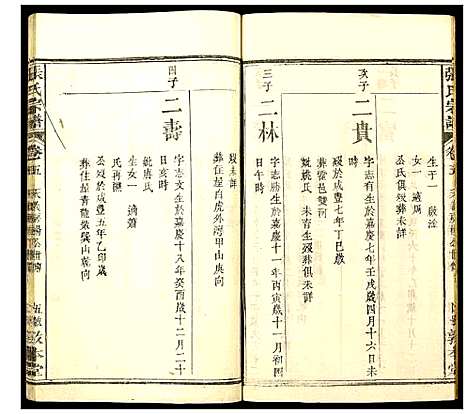 張氏宗譜
卷五
敦本堂
生子一 啟法
生女一 適馬
公氏俱歿葬未詳
次子
二貴
字志有生於嘉慶七年壬戌歲四月十六日未
時
歿於咸豐七年丁巳歲
葬雲邑雙河
三子
二林
字志勝生於嘉慶十一年丙寅歲十一月初四
日午時
娶 未育生歿葬俱未詳
歿未詳
葬住屋白虎外灣甲山庚向
四子
二壽
字志文生於嘉慶十八年癸酉歲十二月二十
日亥時
妣唐氏
歿於咸豐五年乙卯歲
葬住屋青龍嘴巽山乾向
生女一 適蕭
氏再醮
張氏宗譜
卷五
五教敦本堂